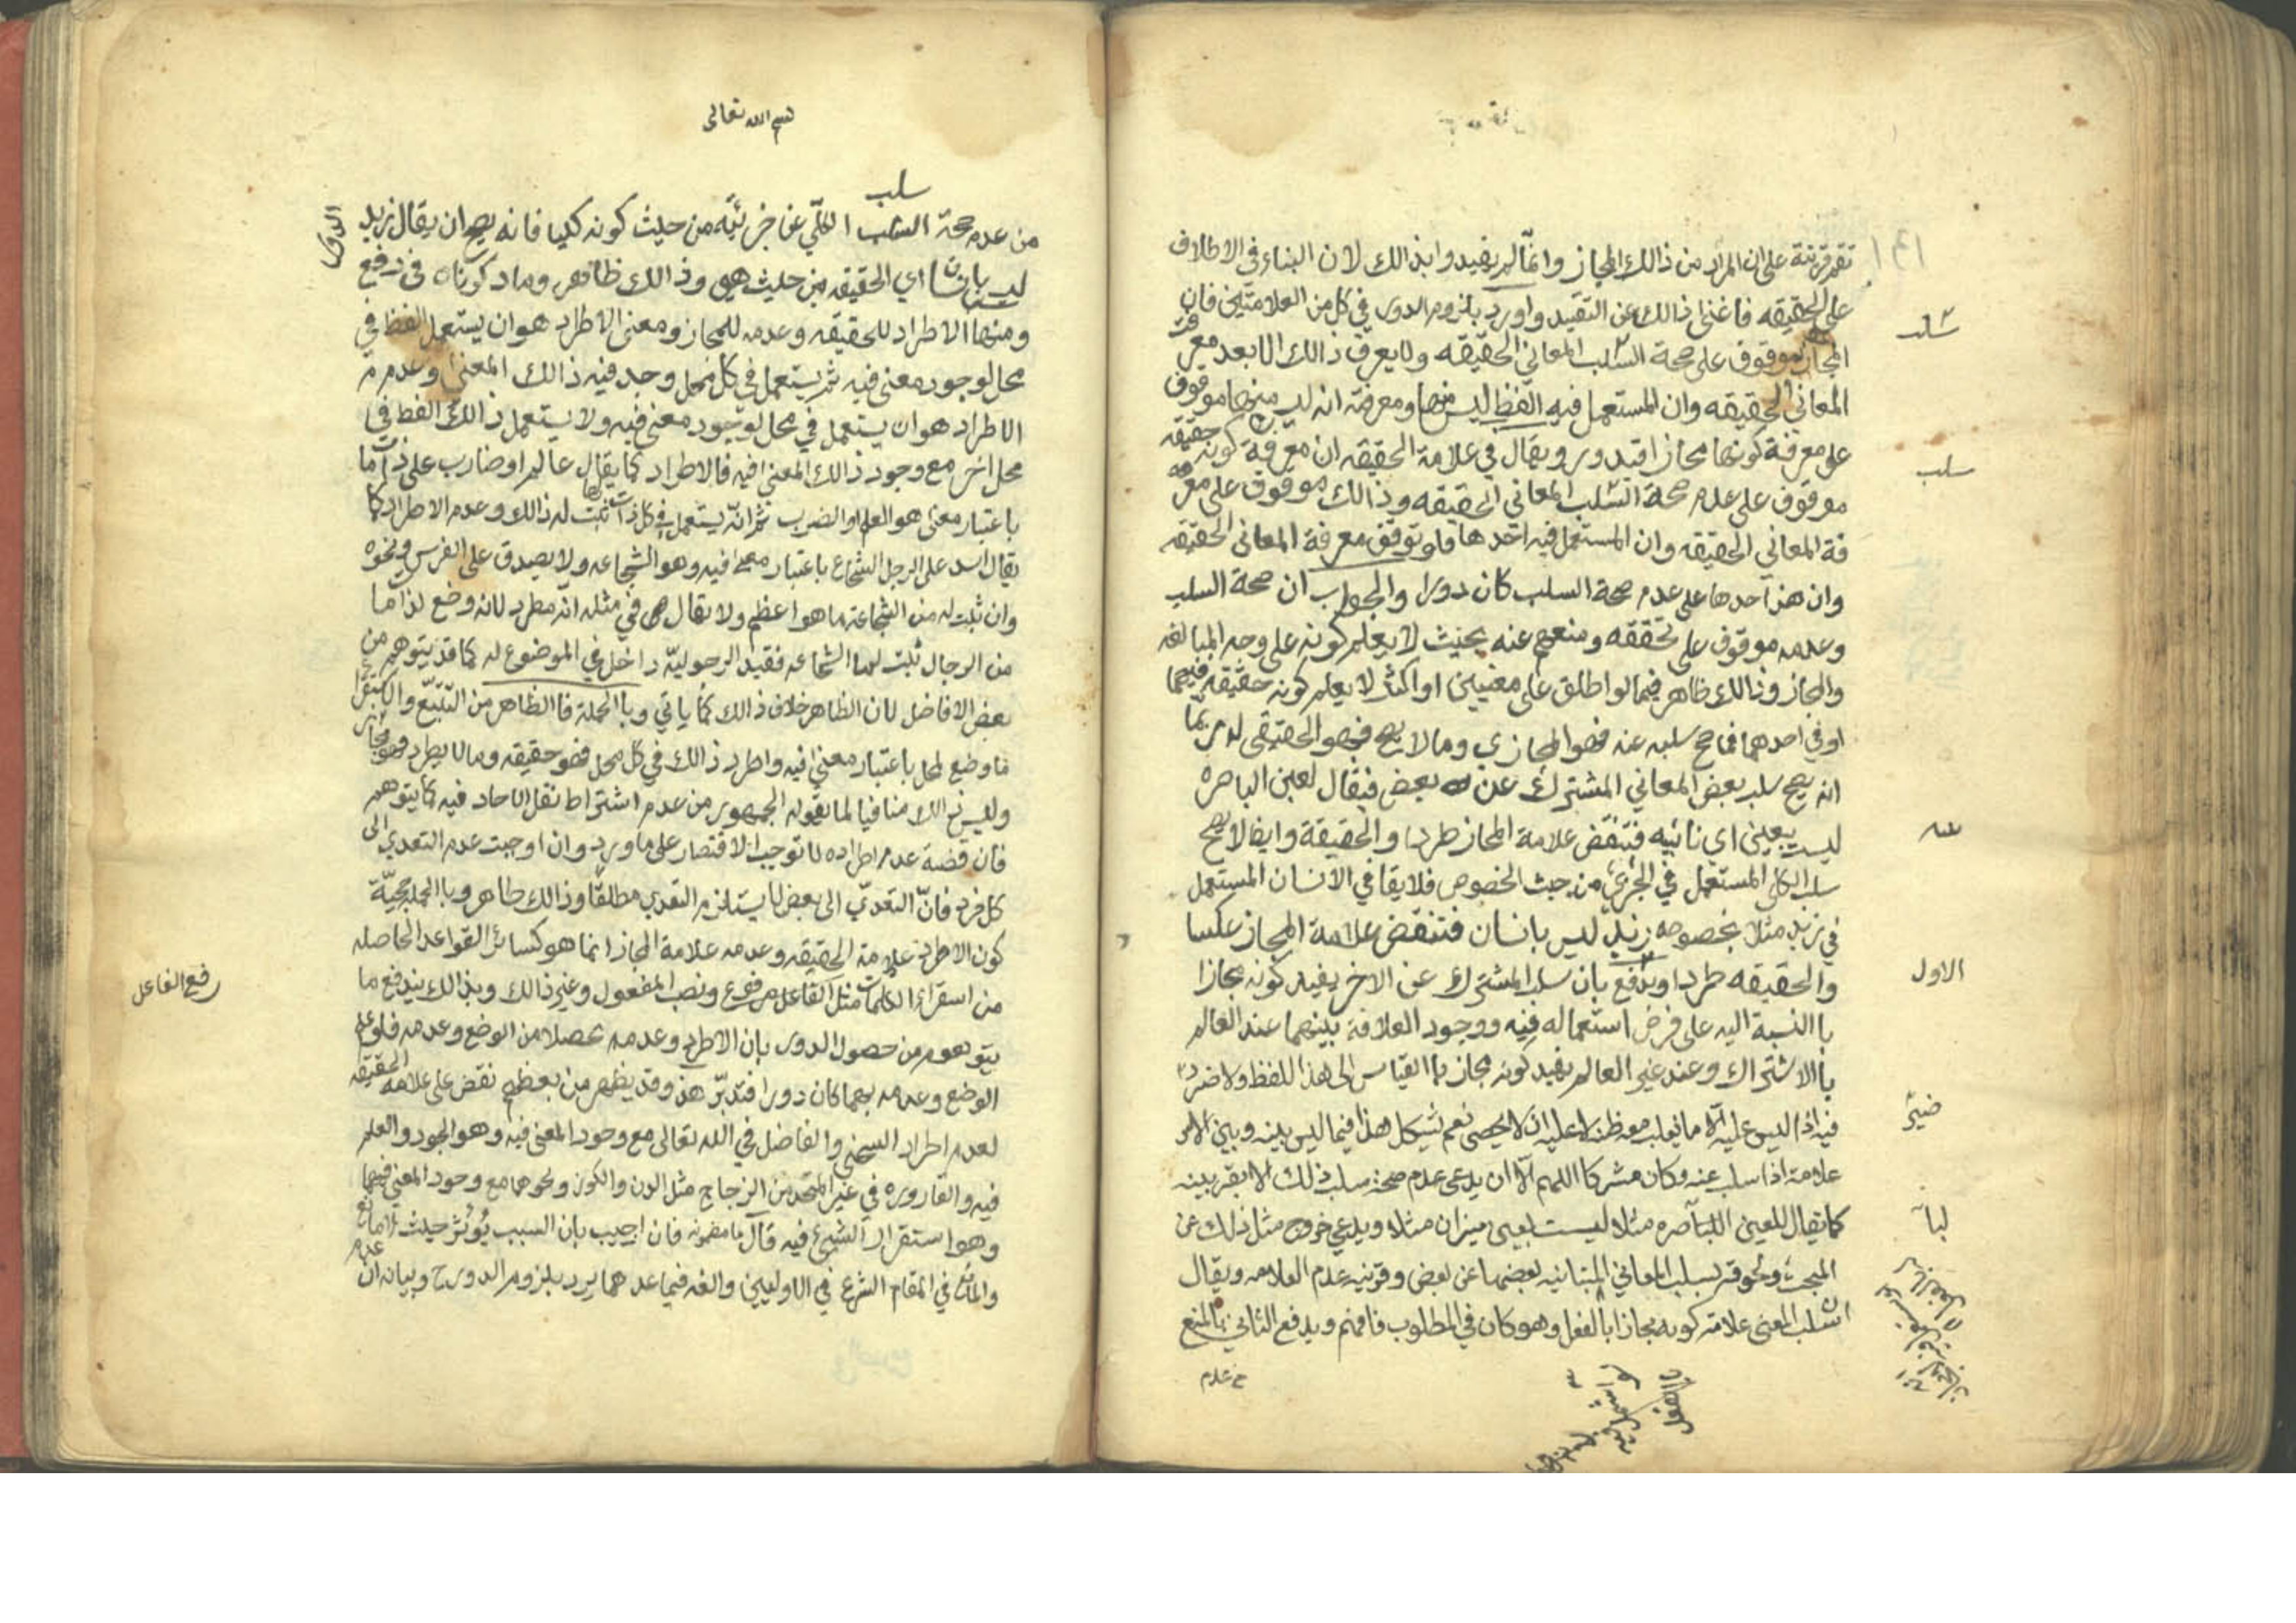 تقم قرينة على ان المراد من ذالك المجاز وانما لم يفيدوا بذالك لان البناء في الاطلاق
على الحقيقه فاغنى ذالك عن التقيد واورد بلزوم الدور في كل من العلامتين فان
المجاز موقوف على صحة السلب المعاني الحقيقه ولا يعرف ذالك الا بعد معرفت
المعاني الحقيقه وان المستعمل فيه الفظ ليس منها ومعرفة انه ليس منها موقوف
على معرفة كونها مجازا فتدور ويقال في علامة الحقيقه ان معرفة كونه حقيقه
موقوف على عدم صحة السلب المعاني الحقيقه وذالك موقوف على معر
فة المعاني الحقيقه وان المستعمل فيه احدها فلو توقف معرفة المعاني الحقيقه
وان هذا احدها على عدم صحة السلب كان دورا والجواب ان صحة السلب
وعدمه موقوف على تحققه ومنعهم عنه بحيث لا يعلم كونه على وجه المبالغه
والمجاز وذالك ظاهر فيما لو اطلق على معنيين او اكثر لا يعلم كونه حقيقه فيهما
او في احدهما فما صح سلبه عنه فهو المجازي وما لا يصح فهو الحقيقي لا ربما
انه يصح سلب بعض المعاني المشترك عن بعض فيقال لعين الباصره
ليست بعين اي نابيه فتنقض علامة المجاز طردا والحقيقة وايضا لا يصح
سلب الكلي المستعمل في الجزئي من حيث الخصوص فلا يقا في الانسان المستعمل
في زيد مثلا بخصوصه زيد ليس بانسان فتنقض علامة المجاز عكسا
والحقيقه طردا ويدفع بان سلب المشترك عن الاخر يفيد كونه مجازا
با النسبة اليه على فرض استعماله فيه ووجود العلاقة بينهما عند العالم
با الاشتراك وعند غير العالم يفيد كونه مجاز با القياس الى هذا اللفظ ولا ضرر
فيه اذ ليس عليه الا ما يغلب معه ظنه لا عليه ان لا يحصى نعم يشكل هذا فيما ليس بينه وبين الامر
علامة اذا سلب عنه وكان مشتركا اللهم الا ان يدعى عدم صحة سلب ذلك الا بقرينه
كما يقال للعين الباصره مثلا ليست بعين ميزان مثلا ويدعي خروج مثل ذلك عن
المبحث ونحو قر بسلب المعاني المتباينه بعضها عن بعض وقرنيه عدم العلامه ويقال
ان سلب المعنى علامة كونه مجازا با الفعل وهو كان في المطلوب فافهم ويدفع الثاني بالمنع
سلب
سلب
عنه
الاول
ضير
لبا
من عدم
بسم الله تعالى
سلب
من عدم صحة السلب الكلي عن جزئيه من حيث كونه كليا فانه يصح ان يقال زيد
ليس بانسان اي الحقيقه من حيث هي وذالك ظاهر وما دكوناه في دفع الدور
ومنها الاطراد للحقيقه وعدمه للمجاز ومعنى الاطراد هو ان يستعمل الفظ في
محل لوجود معنى فيه ثم يستعمل في كل محل وجد فيه ذالك المعنى وعدم
الاطراد هو ان يستعمل في محل لوجود معنى فيه ولا يستعمل ذالك الفظ في
محل اخر مع وجود ذالك المعنى فيه فالاطراد كما يقال عالم او ضارب على ذات ما
باعتبار معنى هو العلم او الضرب ثم انه يستعمل في كل ذات ثبت لها ذالك وعدم الاطراد كما
يقال اسد على الرجل الشجاع باعتبار معنى فيه وهو الشجاعه ولا يصدق على الفرس ونحوه
وان ثبت له من الشجاعة ما هو اعظم ولا يقال في مثله انه مطرد لانه وضع لذات ما
من الرجال ثبت لها الشجاعه فقيد الرجوليه داخل في الموضوع له كما قد يتوهم من
بعض الافاضل لان الظاهر خلاف ذالك كما ياتي وبا الجملة فا الظاهر من التتبع والاستقرا
ما وضع لمحل باعتبار معنى فيه واطرد ذالك في كل محل فهو حقيقه وما لا يطرد فهو مجاز
وليس ذالك منافيا لما يقوله الجمهور من عدم اشتراط نقل الاحاد فيه كما يتوهم
فان قضية عدم اطراده لا توجب الاقتصار على ما ورد وان اوجبت عدم التعدي الى
كل فرد فان التعدي الى بعض لا يستلزم التعدي مطلقا وذالك ظاهر وبا الجمله حجية
كون الاطراد علامة الحقيقه وعدمه علامة المجاز انما هو كسائر القواعد الحاصله
من استقراء الكلمات مثل الفاعل مرفوع ونصب المفعول وغير ذالك وبذالك يندفع ما
يتوهم من حصول الدور بان الاطراد وعدمه تحصلا من الوضع وعدمه فلو علم
الوضع وعدمه بهما كان دورا فتدبر هذ وقد يظهر من بعظهم نقض على علامه الحقيقه
لعدم اطراد السخي والفاضل في الله تعالى مع وجود المعنى فيه وهو الجود والعلم
فيه والقاروره في غير المتخذ من الزجاج مثل الدن والكوز ونحوهما مع وجود المعنى فيهما
وهو استقرار الشيئ فيه قال با مضمونه فان اجيب بان السبب يؤثر حيث لا مانع
والمانع في المقام الشرع في الاوليين والغه فيما عدهما يرد بلزوم الدور ح وبيانه ان عدم
رفع الفاعل